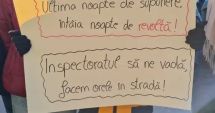 Ultima noapte de supunere,
întâia noapte de revoltă!
Inspectoratul să ne vadă,
facem orele în stradă!